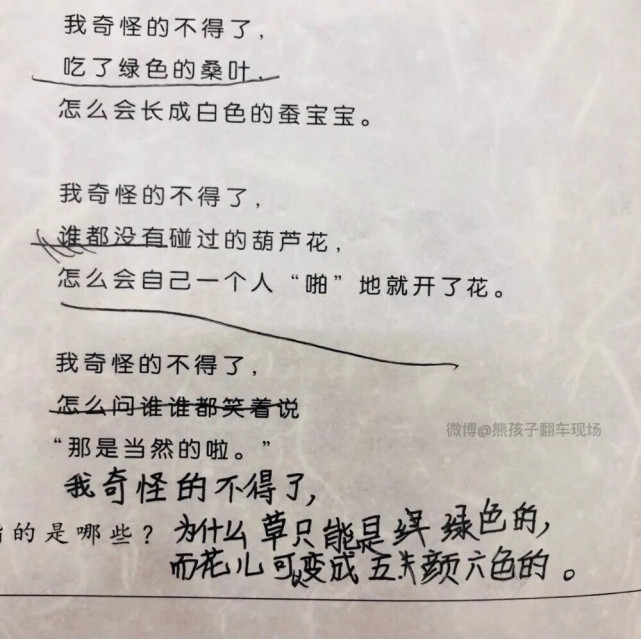 我奇怪的不得了，
吃了绿色的桑叶，
怎么会长成白色的蚕宝宝。
我奇怪的不得了，
谁都没有碰过的葫芦花，
怎么会自己一个人“啪”地就开了花。
我奇怪的不得了，
怎么问谁谁都笑着说
“那是当然的啦。”
微博@熊孩子翻车现场
我奇怪的不得了，
的是哪些？
为什么草只能是绿色的，
而花儿可以变成五颜六色的。